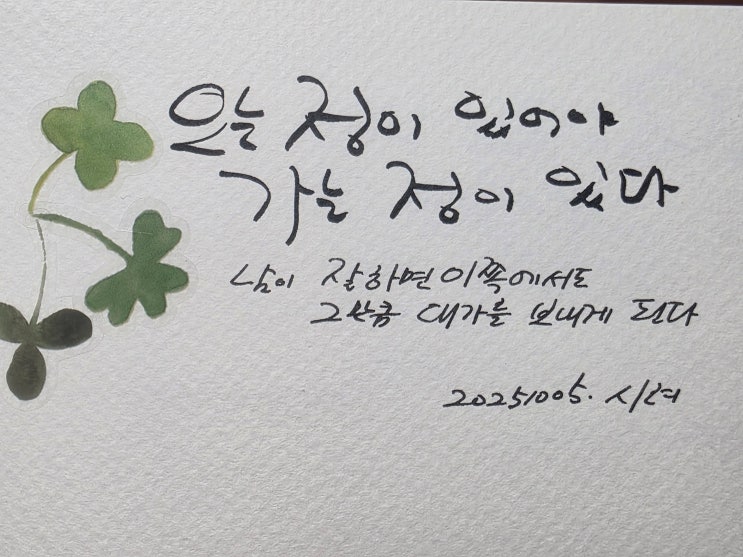 오는 정이 있어야
가는 정이 있다
남이 잘하면 이쪽에서도
그만큼 대가를 보내게 된다
20251005. 시현